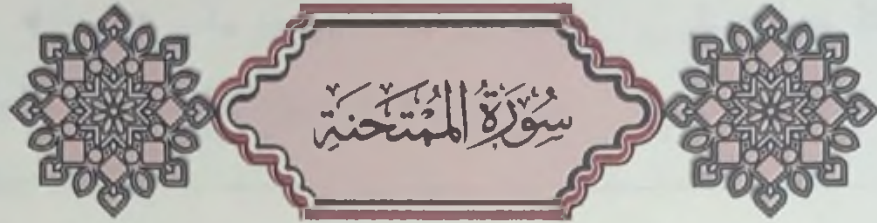 سُورَةُ الْمُمْتَحَنَةِ